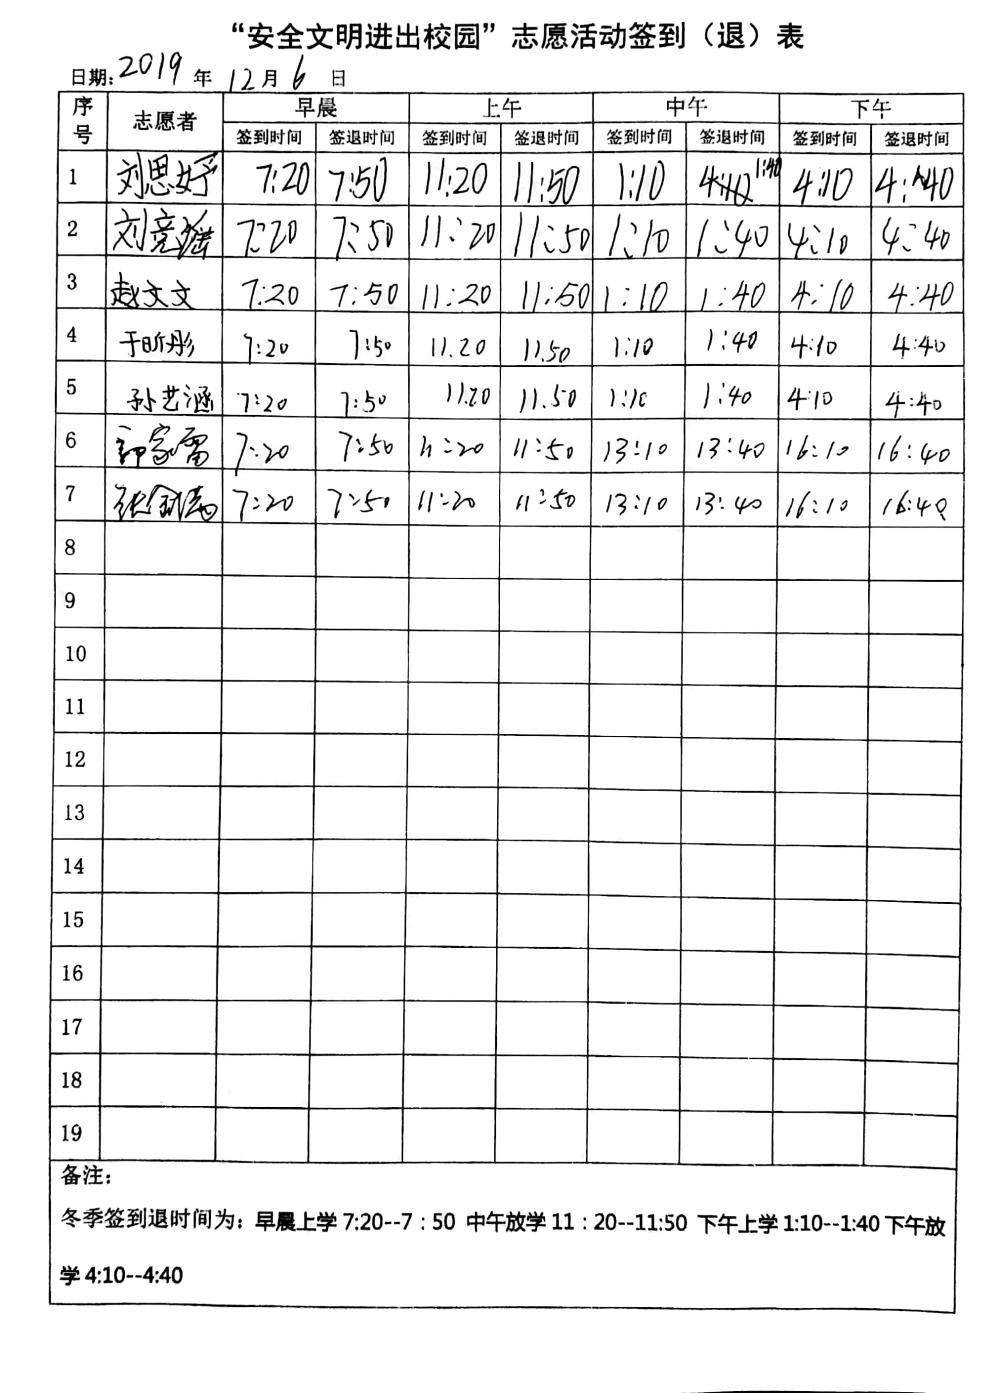 “安全文明进出校园”志愿活动签到（退）表
日期: 2019 年 12 月 6 日
序号 志愿者 早晨 上午 中午 下午
签到时间 签退时间 签到时间 签退时间 签到时间 签退时间 签到时间 签退时间
1 刘思妤 7:20 7:50 11:20 11:50 1:10 1:40 4:10 4:40
2 刘竞瑶 7:20 7:50 11:20 11:50 1:10 1:40 4:10 4:40
3 赵文文 7:20 7:50 11:20 11:50 1:10 1:40 4:10 4:40
4 于昕彤 7:20 7:50 11.20 11.50 1:10 1:40 4:10 4:40
5 孙艺涵 7:20 7:50 11.20 11.50 1:10 1:40 4:10 4:40
6 家雷 7:20 7:50 11:20 11:50 13:10 13:40 16:10 16:40
7 张 7:20 7:50 11:20 11:50 13:10 13:40 16:10 16:40
8
9
10
11
12
13
14
15
16
17
18
19
备注:
冬季签到退时间为: 早晨上学 7:20--7：50 中午放学 11：20--11:50 下午上学 1:10--1:40 下午放
学 4:10--4:40